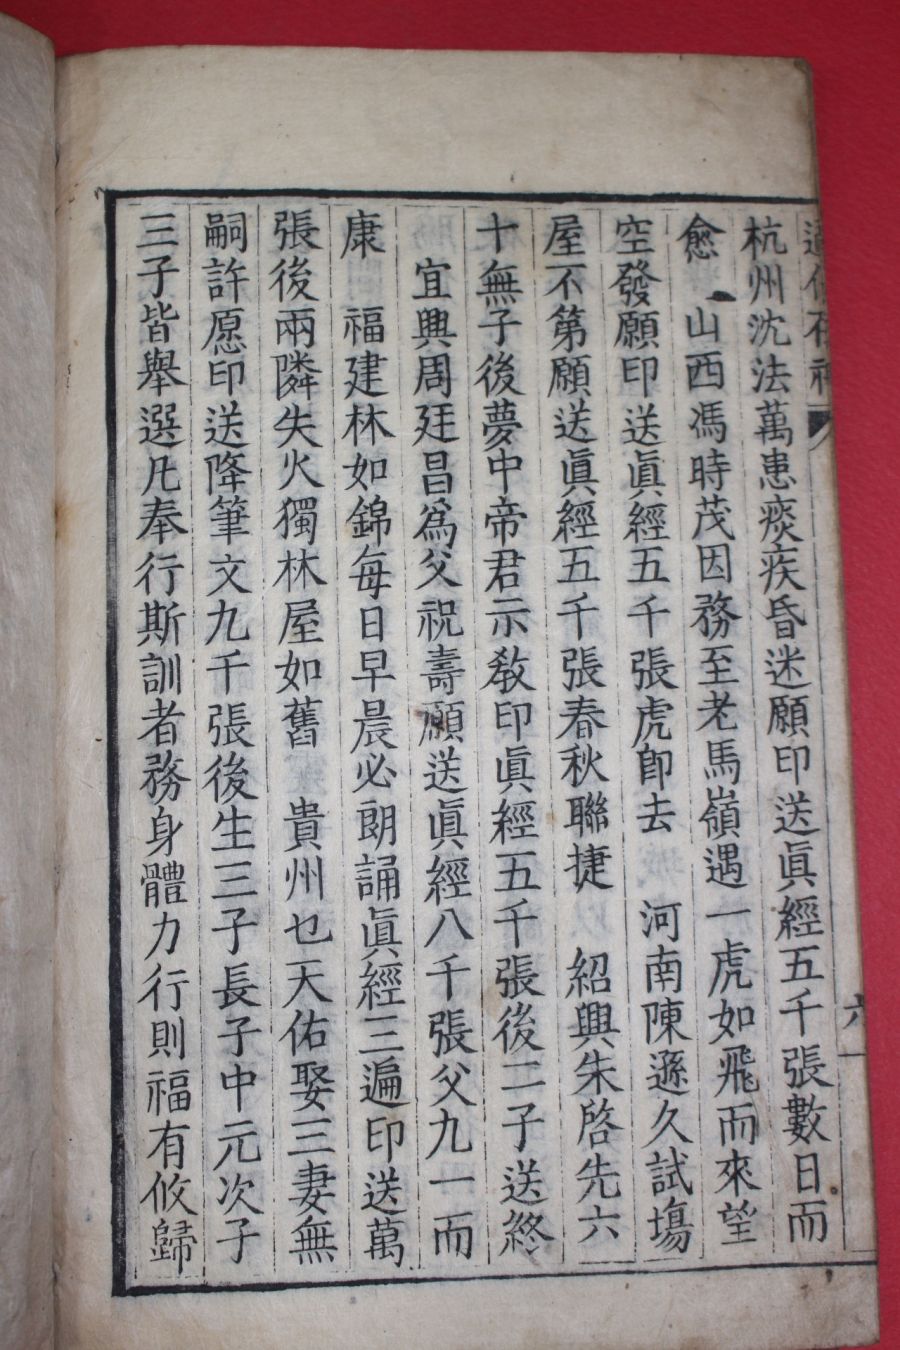 杭州沈法萬患痰疾昏迷願印送眞經五千張數日而
愈　山西馮時茂因務至老馬嶺遇一虎如飛而來望
空發願印送眞經五千張虎卽去　河南陳遜久試塲
屋不第願送眞經五千張春秋聯捷　紹興朱啓先六
十無子後夢中帝君示敎印眞經五千張後二子送終
宜興周廷昌爲父祝壽願送眞經八千張父九一而
康　福建林如錦每日早晨必朗誦眞經三遍印送萬
張後兩隣失火獨林屋如舊　貴州乜天佑娶三妻無
嗣許愿印送降筆文九千張後生三子長子中元次子
三子皆舉選凡奉行斯訓者務身體力行則福有攸歸